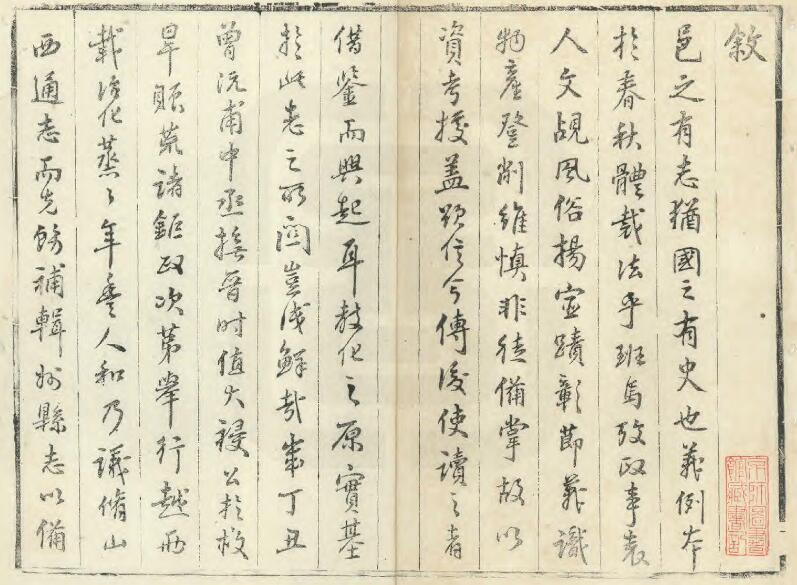 敘
邑之有志猶國之有史也義例本
於春秋體裁法乎班馬攷政事表
人文覘風俗揚宦蹟彰節義識
物產登削維慎非徒備掌故以
資考據蓋欲信今傳後使讀之者
借鑒而興起耳教化之原實基
於此志之所關豈淺鮮哉歲丁丑
曾沅甫中丞撫晉時值大祲公於救
旱賑荒諸鉅政次第舉行越兩
載治化蒸〻年豐人和乃議脩山
西通志而先飭補輯州縣志以備
京師圖書
館藏書記